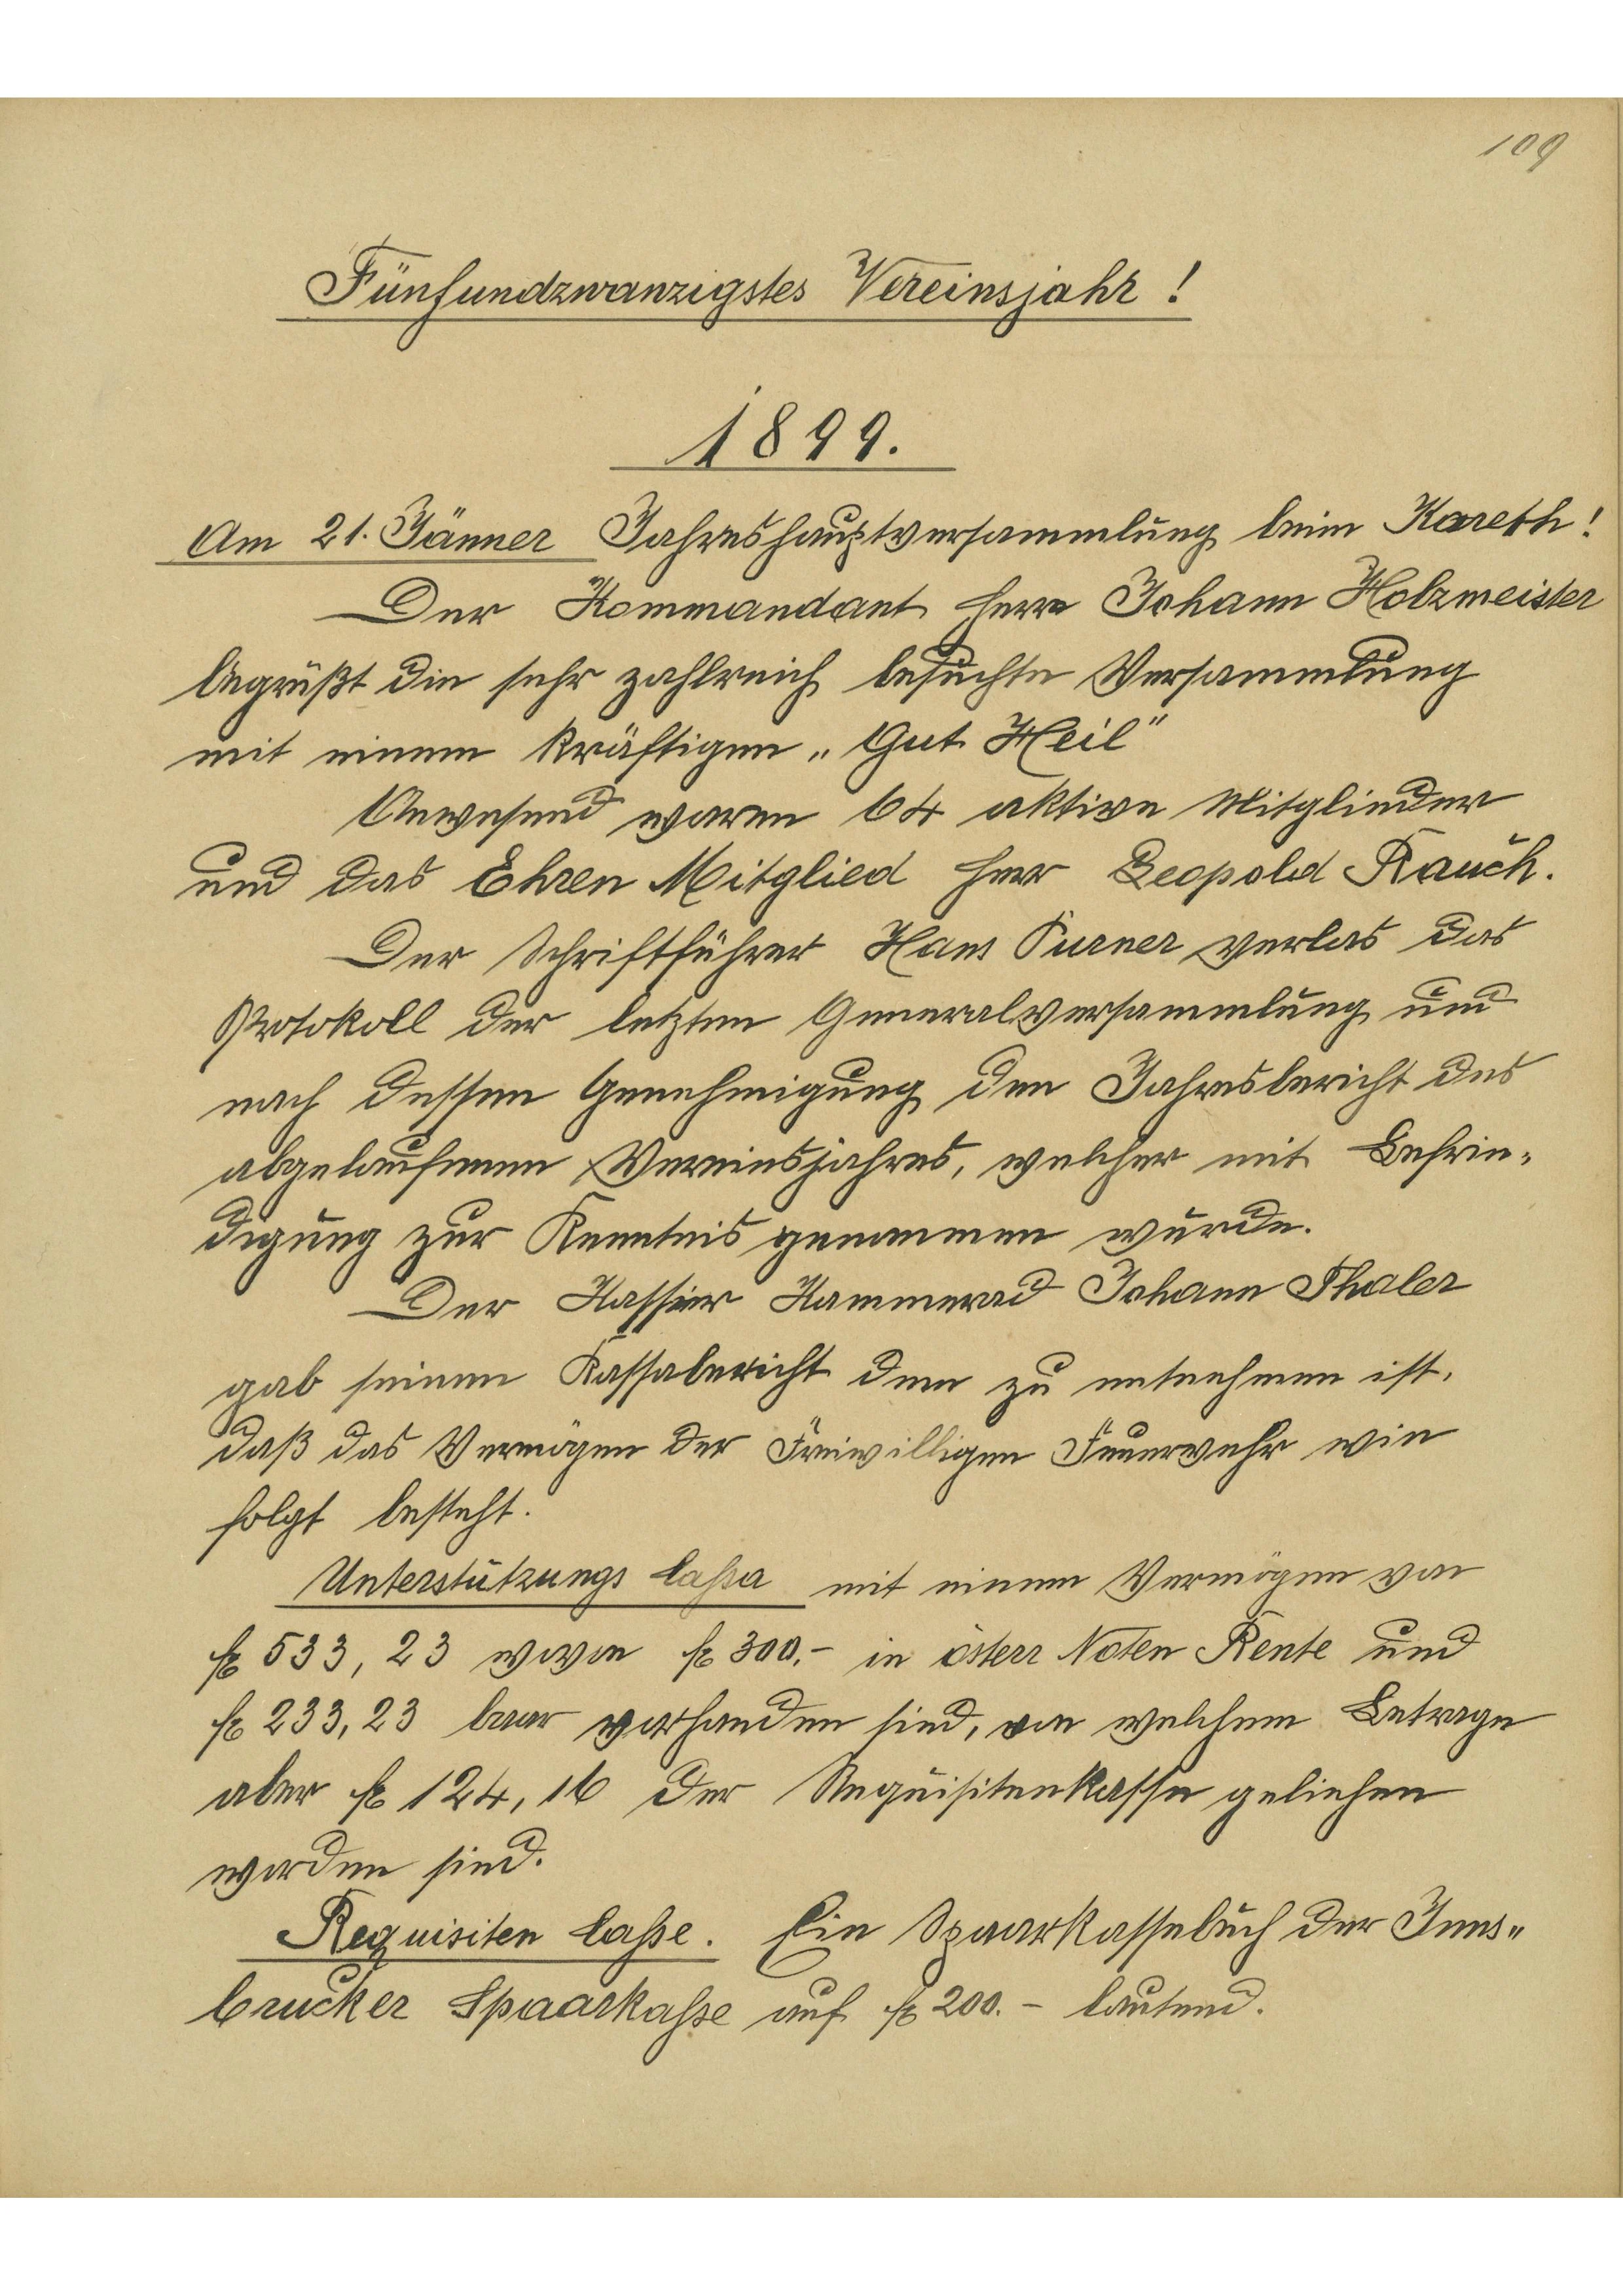 109
Fünfundzwanzigstes Vereinsjahr!
1899.
Am 21. Jänner Jahreshauptversammlung beim Kareth!
Der Kommandant Herr Johann Holzmeister
begrüßt die sehr zahlreich besuchte Versammlung
mit einem kräftigen „Gut Heil"
Anwesend waren 64 aktive Mitglieder
und das Ehren Mitglied Herr Leopold Rauch.
Der Schriftführer Hans Purner verlas das
Protokoll der letzten Generalversammlung und
nach dessen Genehmigung den Jahresbericht des
abgelaufenen Vereinsjahres, welcher mit Befrie-
digung zur Kenntnis genommen wurde.
Der Kassier Kammerad Johann Thaler
gab seinen Kassabericht dem zu entnehmen ist,
daß das Vermögen der Freiwilligen Feuerwehr wie
folgt besteht.
Unterstützungs Cassa mit einem Vermögen von
fl 533,23 wovon fl 300.- in österr Noten Rente und
fl 233,23 baar vorhanden sind, von welchem Betrage
aber fl 124,16 der Requisitenkasse geliehen
worden sind.
Requisiten Casse. Ein Spaarkassebuch der Inns-
brucker Spaarkasse auf fl 200.- lautend.